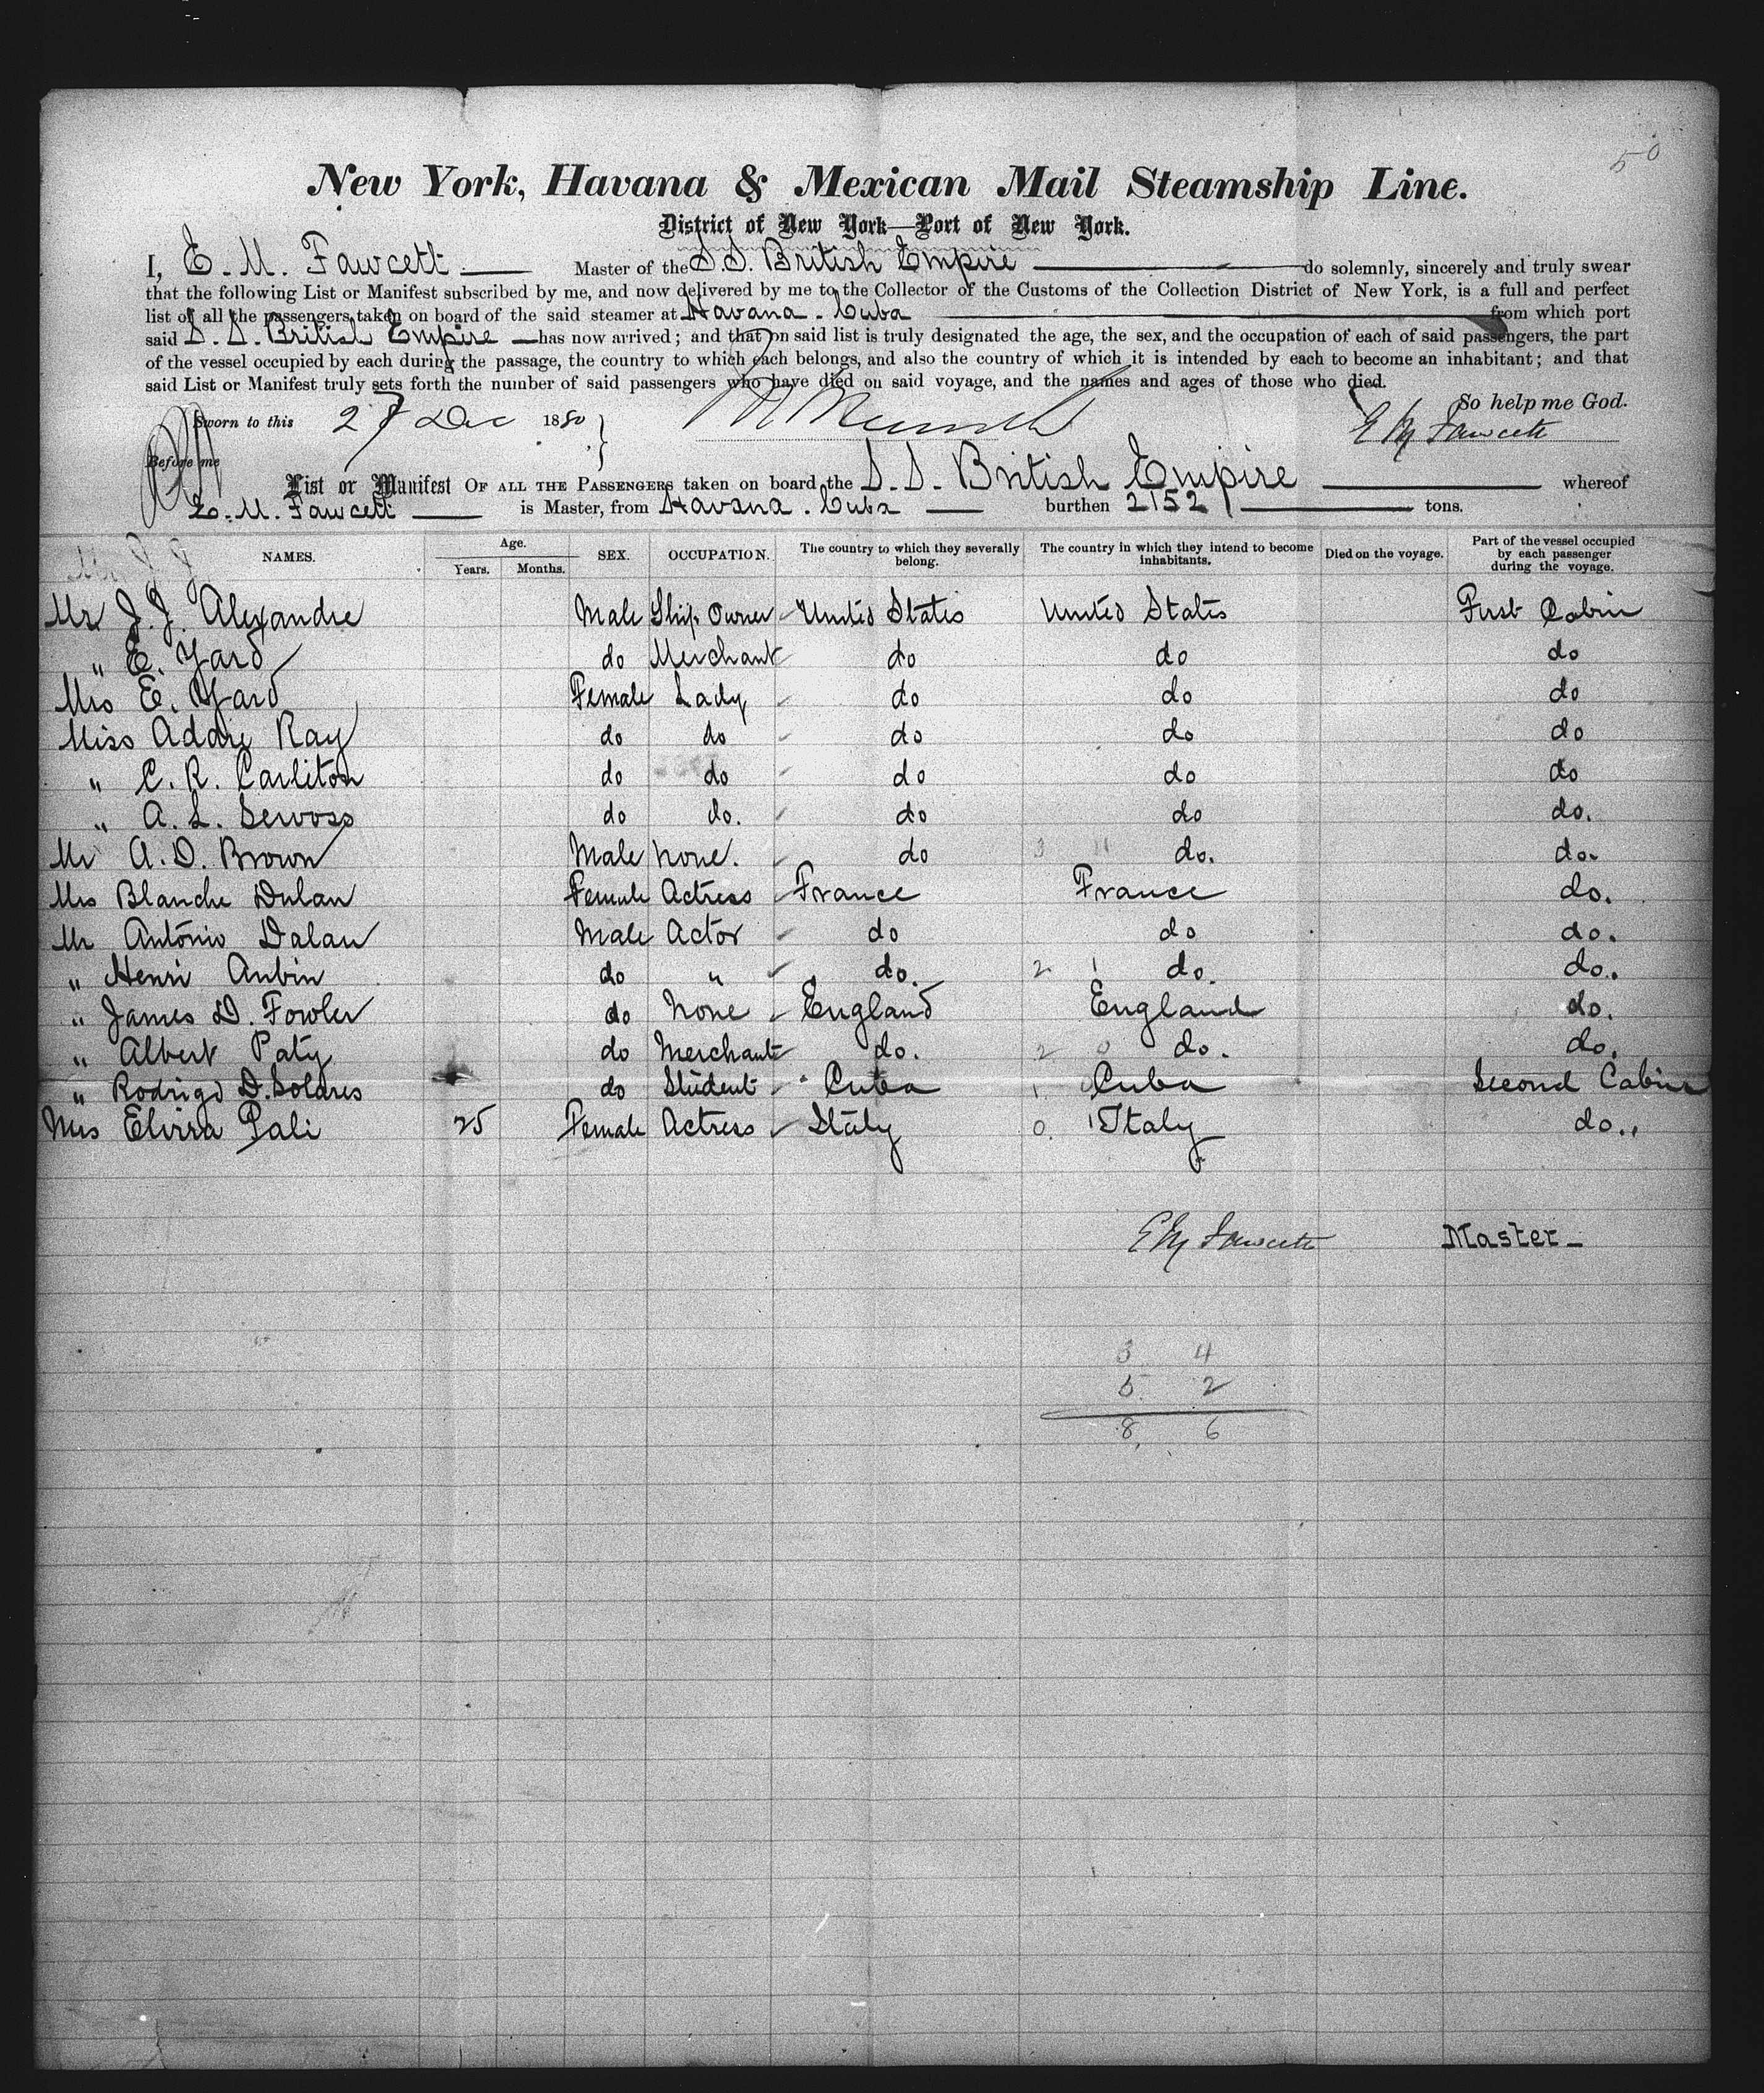 50
New York, Havana & Mexican Mail Steamship Line.
District of New York—Port of New York.
I, E. M. Fawcett Master of the S.S. British Empire do solemnly, sincerely and truly swear
that the following List or Manifest subscribed by me, and now delivered by me to the Collector of the Customs of the Collection District of New York, is a full and perfect
list of all the passengers taken on board of the said steamer at Havana. Cuba from which port
said S. S. British Empire has now arrived; and that on said list is truly designated the age, the sex, and the occupation of each of said passengers, the part
of the vessel occupied by each during the passage, the country to which each belongs, and also the country of which it is intended by each to become an inhabitant; and that
said List or Manifest truly sets forth the number of said passengers who have died on said voyage, and the names and ages of those who died.
So help me God.
Sworn to this 27 Dec 1880 E M Fawcett
Before me
List or Manifest OF ALL THE PASSENGERS taken on board the S. S. British Empire whereof
E. M. Fawcett is Master, from Havana. Cuba burthen 2152 tons.
NAMES. Age. Years. Months. SEX. OCCUPATION. The country to which they severally belong. The country in which they intend to become inhabitants. Died on the voyage. Part of the vessel occupied by each passenger during the voyage.
Mr J. J. Alexandre Male Ship Owner United States United States First Cabin
" E. Yard do Merchant do do do
Mrs E. Yard Female Lady do do do
Miss Addie Ray do do do do do
" C. R. Carliton do do do do do
" A. L. Servoss do do. do do do.
Mr A. D. Brown Male None. do 3 4 do. do.
Mrs Blanche Dulan Female Actress France France do.
Mr Antonio Dalan Male Actor do do do.
" Henri Aubin do " do. 2 1 do. do.
" James D. Fowler do None England England do.
" Albert Paty do Merchant do. 2 0 do. do.
" Rodrigo D. Solares do Student Cuba 1 Cuba Second Cabin
Mrs Elvira Pali 25 Female Actress Italy 0. 1 Italy do.
E M Fawcett Master
3 4
5 2
8 6